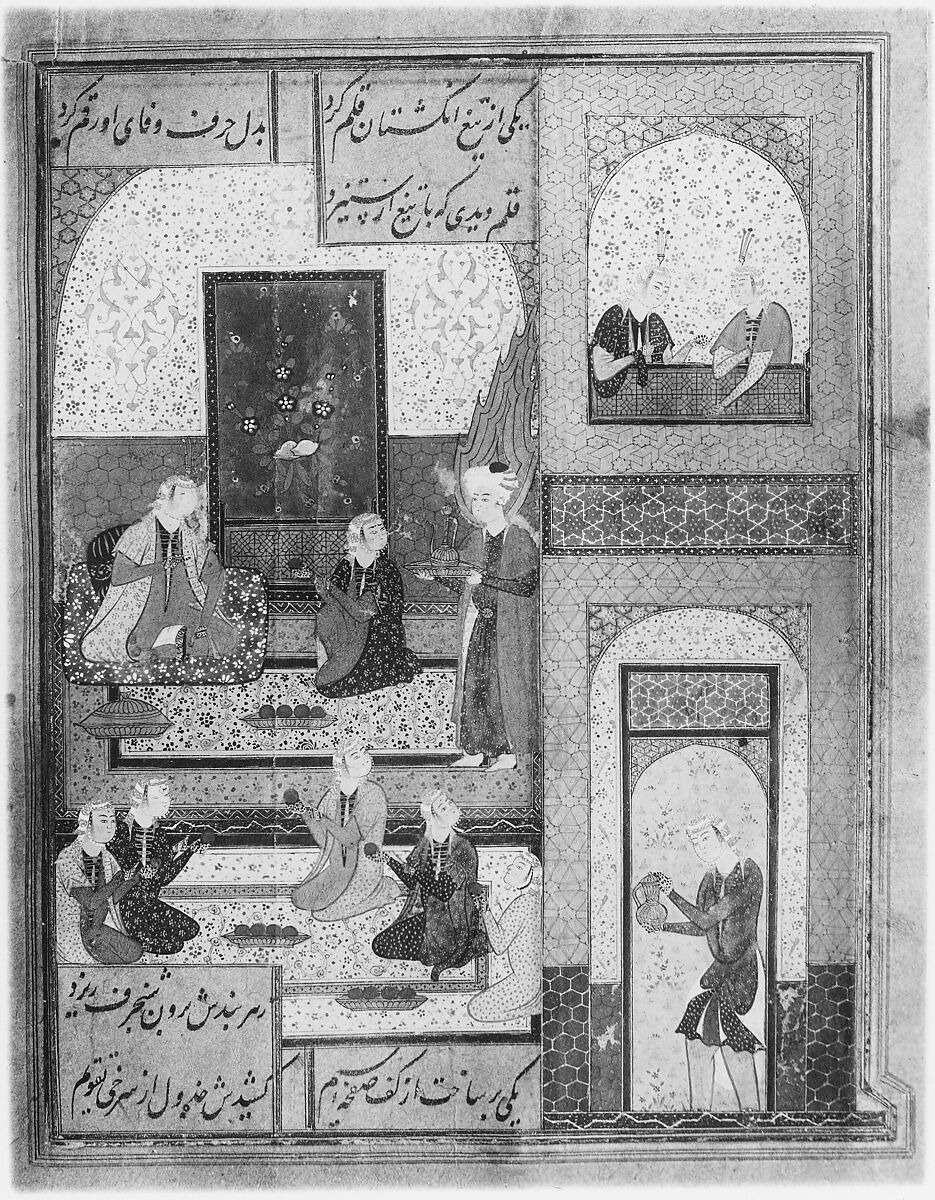 یکی از تیغ انگشتان قلم کرد
بدل حرف وفای او رقم کرد
قلم دیدی که با تیغ ار ستیزد
زهر بندش برون شنجرف ریزد
یکی بر ساخت از کف صفحه سیم
کشیدش جدول از سرخی تقویم